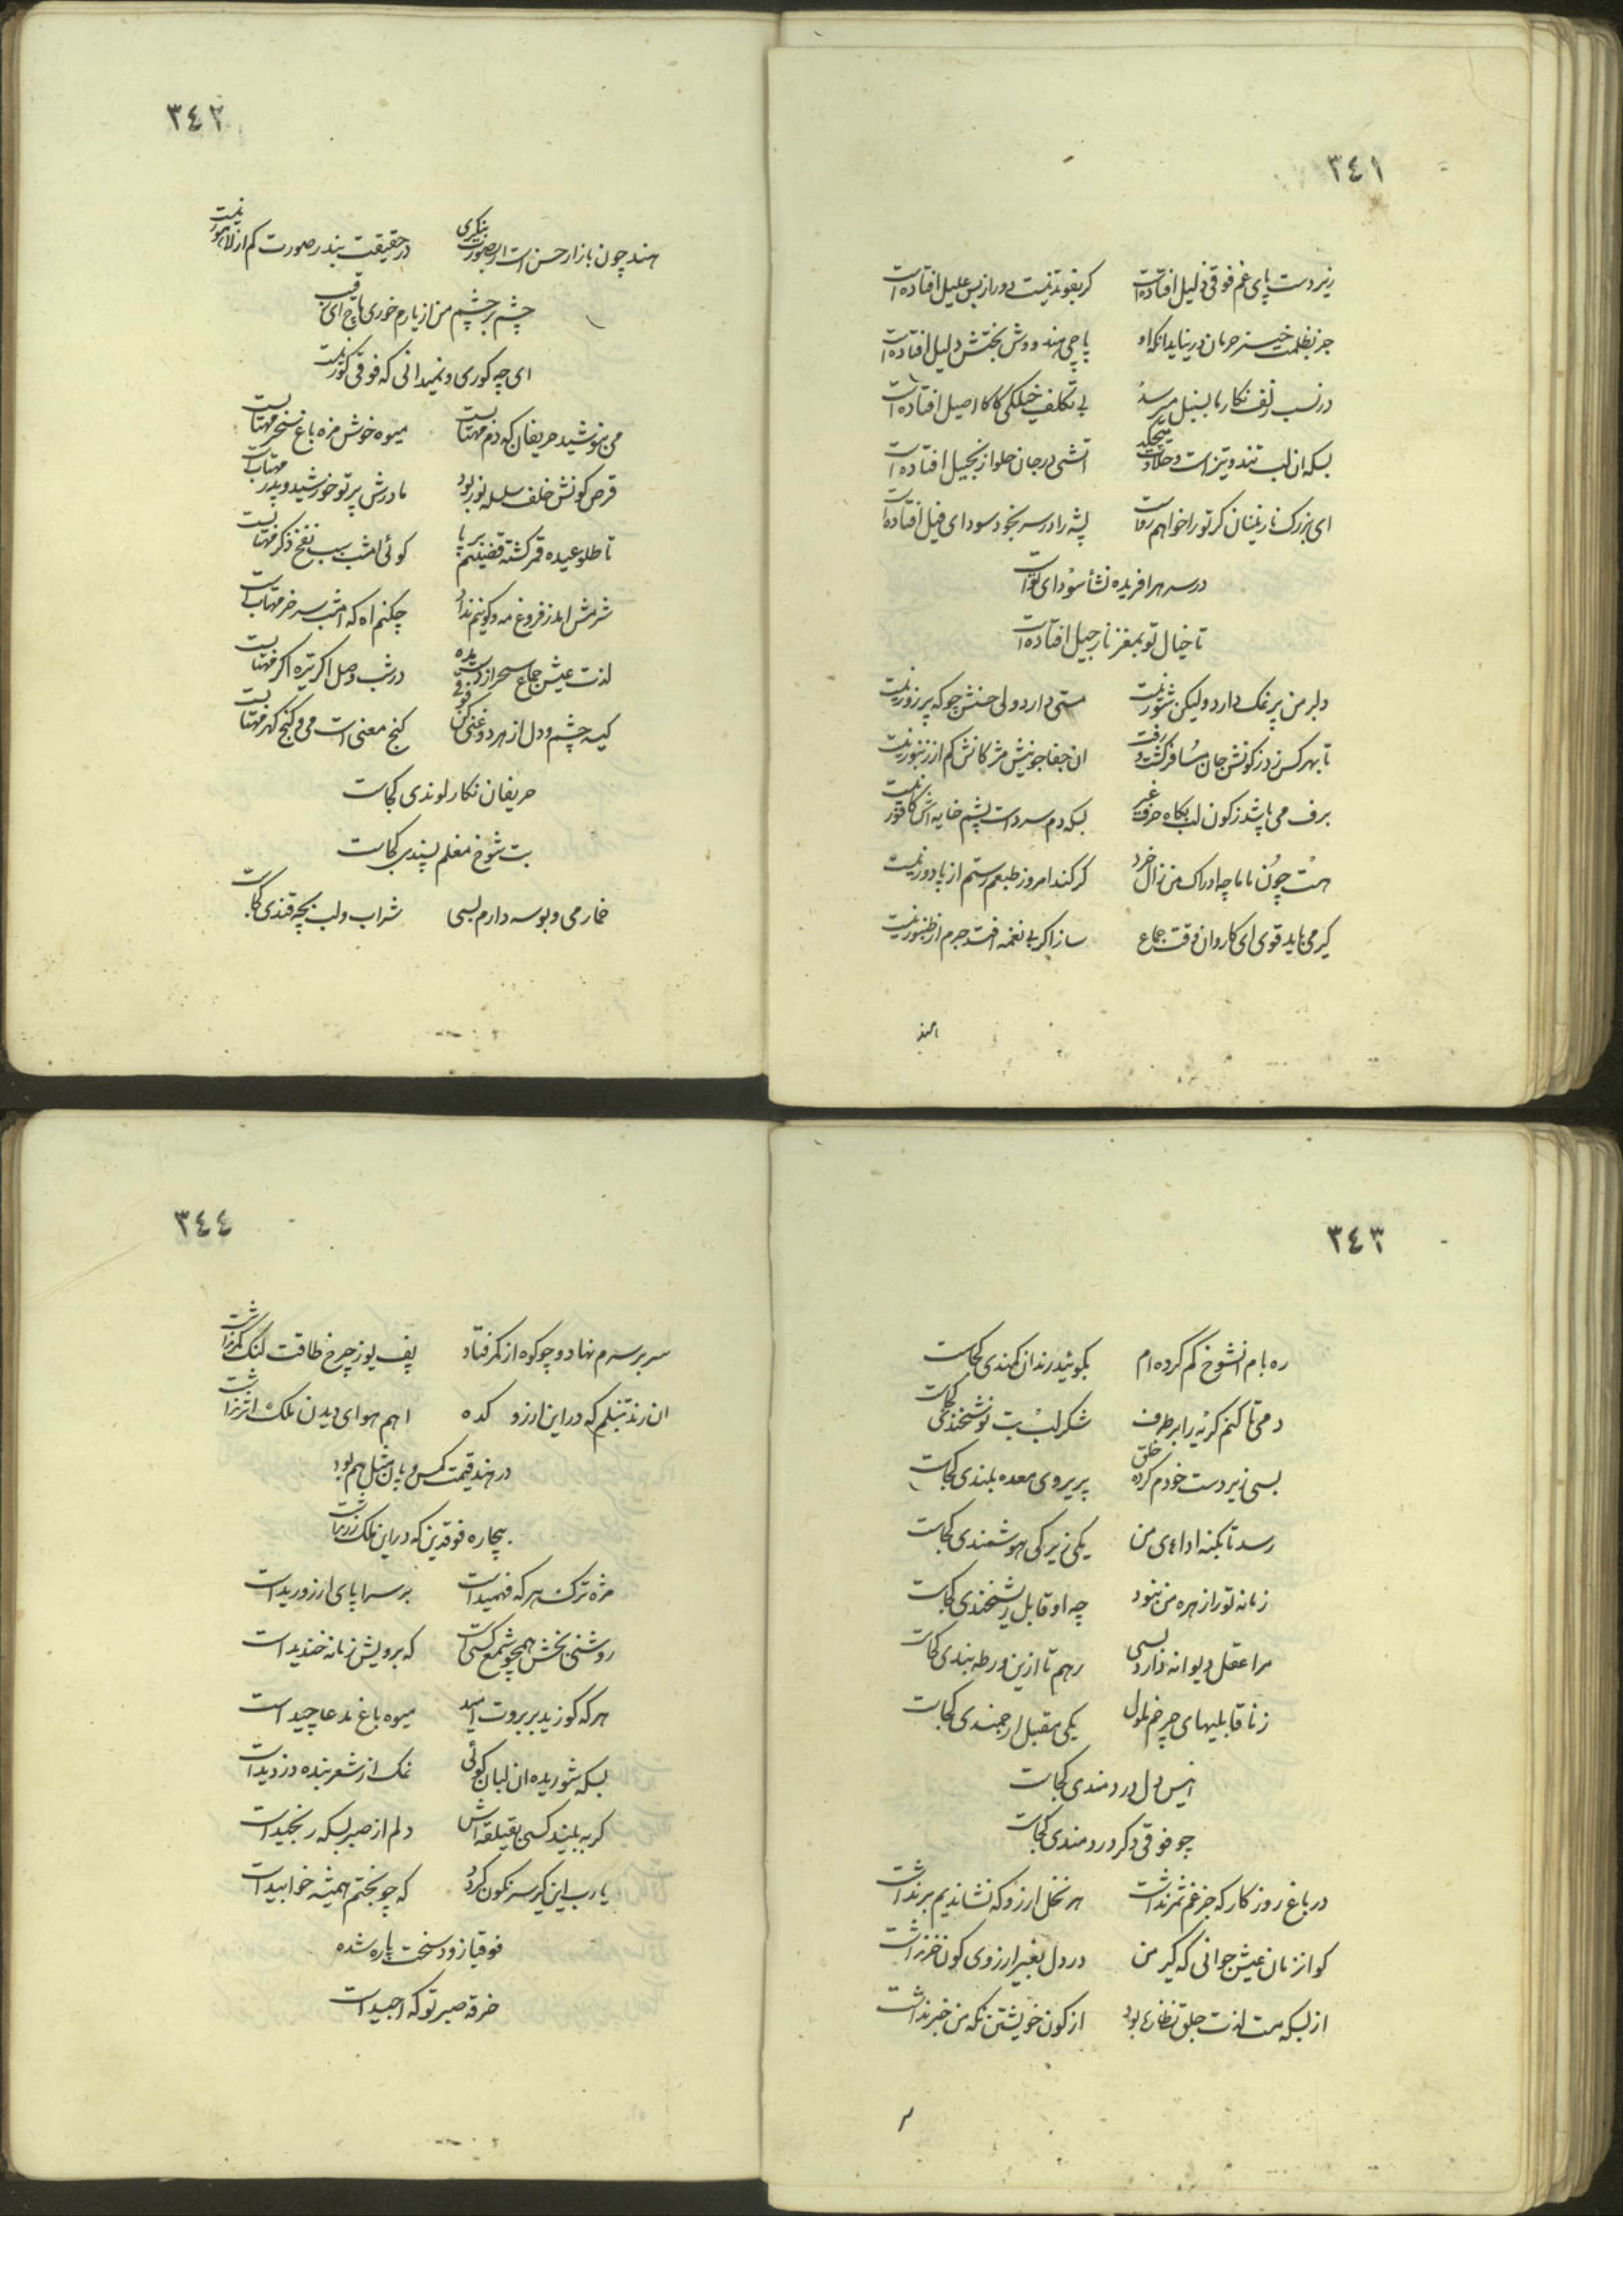 ٣٤١
زیر دست پای غم فوقی ذلیل افتاده است کر بغوند نیست دور از بس علیل افتاده است
جز بظلمت خیز حرمان در نیاید انکه او پاچی هند ووش بختش دلیل افتاده است
در نسب زلف نکار ما بسنبل میرسد بی تکلف خیلکی کاکا اصیل افتاده است
بسکه ان لب تند و تیز است و حلاوت میچکد اتشی در جان حلوا زنجبیل افتاده است
ای بزرک نازنینان کر تو را خواهم رواست پشه را در سر بخود سودای فیل افتاده است
در سر هر افریده نشأ سودای تو است
تا خیال تو بمغز نارجیل افتاده است
دلبر من پر نمک دارد ولیکن شور نیست مستی دارد ولی حسنش چو که پر زور نیست
تا بهر کس زد ز کونش جان مسافر کشت و رفت ان جفا جو نیش مژکانش کم از زنبور نیست
برف می پاشد ز کون لب بکاه حرف غیر بسکه دم سرد است پشم خایه اش کافور نیست
هست چون ماما چه ادراک من زال خرد کر کند امروز طبعم رستم از پا دور نیست
کیر می باید قوی ای کاروان وقت جماع ساز اکر بی نغمه افتد جرم از طنبور نیست
هند
٣٤٢
هند چون بازار حسن است ار بصورت بنکری در حقیقت بندر صورت کم از لاهور نیست
چشم بر چشم من از یارم خوری پاچ ای رقیب
ای چه کوری و نمیدانی که فوقی کور نیست
می بنوشید حریفان که دم مهتابست میوه خوش مزه باغ سخر مهتابست
قرص کونش خلف سلسله نور بود مادرش پرتو خورشید و پدر مهتابست
تا طلوعیده قمر کشته قضیبم بر پا کوئی امشب سبب نفخ ذکر مهتابست
شرمش اید ز فروغ مه و کونم ندهد چکنم اه که امشب سر خر مهتاب است
لذت عیش جماع سحر از دست مده در شب وصل اکر تیره اکر مهتابست
کیسه چشم و دل از هر دو غنی کن فوقی کنج معنی است می و کنج کهر مهتابست
حریفان نکار لوندی کجاست
بت شوخ مغلم پسندی کجاست
خمار می و بوسه دارم بسی شراب و لب بچه قندی کجاست
٣٤٣
ره بام انشوخ کم کرده ام بکوئید رندان کمندی کجاست
دمی تا کنم کریه را بر طرف شکر لب بت نوشخندی کجاست
بسی زیر دست خودم کرده خلق پریروی معده بلندی کجاست
رسد تا بکنه اداءی من یکی زیرکی هوشمندی کجاست
زمانه تو را زهره من نبود چه او قابل ریشخندی کجاست
مرا عقل دیوانه دارد بسی رهم تا ازین ورطه بندی کجاست
ز ناقابلیهای چرخم ملول یکی مقبل ارجمندی کجاست
انیس دل دردمندی کجاست
چو فوقی دکر دردمندی کجاست
در باغ روزکار که جز غم ثمر نداشت هر نخل ارزو که نشاندیم بر نداشت
کو انزمان عیش جوانی که کیر من در دل بغیر ارزوی کون خر نداشت
از بسکه مست لذت جلق نظاره بود از کون خویشتن نکه من خبر نداشت
٣٤٤
سر بر سرم نهاد و چو کوه از کمر فتاد پف یوز چرخ طاقت لنک کمر نداشت
ان رند تنبلم که در این ارزو کده اهم هوای دیدن ملک اثر نداشت
در هند قیمت کس و یان مثل هم بود
بیچاره فوقدین که در این ملک زر نداشت
مژه ترک هر که فهمیده است بر سراپای ارزو ریده است
روشنی بخش همچو شمع کسی است که برویش زمانه خندیده است
هر که کوزید بر بروت امید میوه باغ مدعا چیده است
بسکه شوریده ان لبان کوئی نمک از شعر بنده دزدیده است
کر به بیند کسی بقیلقه اش دلم از صبر بسکه رنجیده است
یارب این کیر سر نکون کردد که چو بختم همیشه خوابیده است
فوقیا زود سخت پاره شده
خرقه صبر تو که اجیده است